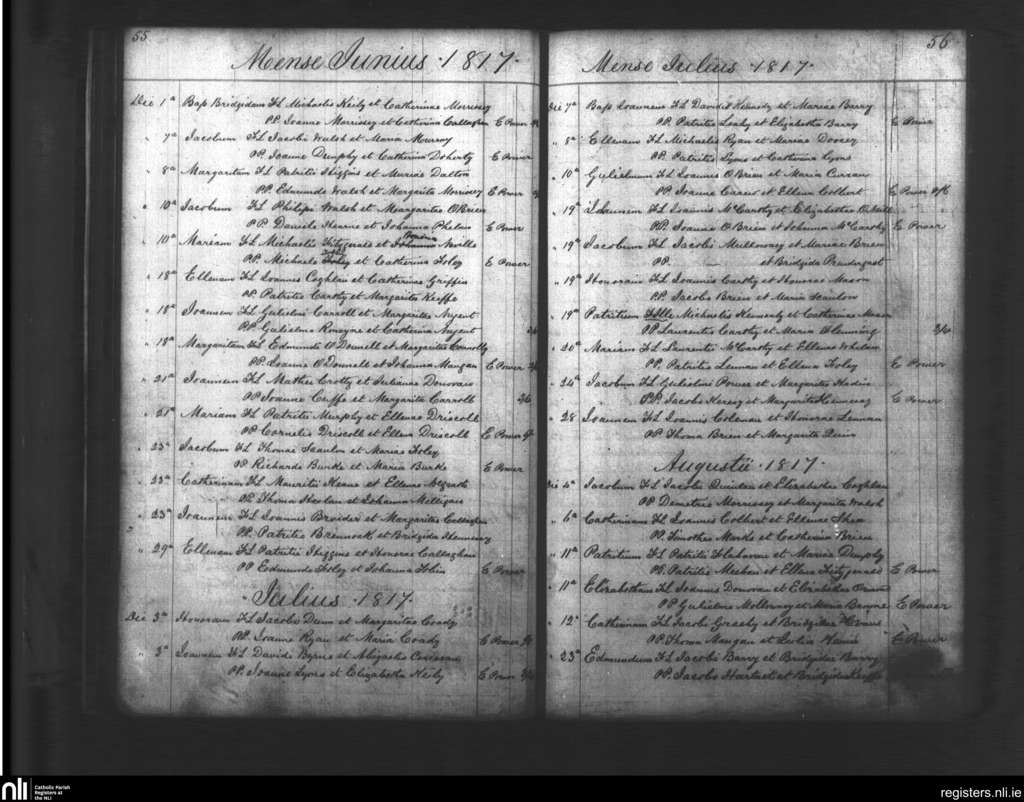 55
Mense Junius 1817.
Die 1a Bap Bridgidam FL Michaelis Keily et Catherinae Morrissy
PP Joanne Morrissy et Catherina Callaghan E Power
" 7a Jacobum FL Jacobi Walsh et Maria
PP. Joanne Dunphy et Catherina Doherty E Power
" 8a Margaritam FL Patritii Higgins et Mariae Dalton
PP. Edmundo Walsh et Margarita Morrissey E Power
" 10a Jacobum FL Philipi Walsh et Margaritae OBrien
PP. Daniele Hearne et Johanna Phelan E Power
" 10a Mariam FL Michaelis Fitzgerald et Johanna Neville
PP. Michaele Foley et Catherina Foley E Power
" 18 Ellenam FL Joannis Coghlan et Catherinae Griffin
PP. Patritio Carthy et Margarita Keeffe
" 18a Joannem FL Gulielmi Carroll et Margaritae Nugent
PP. Gulielmo Ronayne et Catherina Nugent
" 18a Margaritam FL Edmundi O'Donnell et Margaritae Connolly
PP. Joanne O'Donnell et Johanna Mangan E Power
" 21a Joannem FL Mathei Crotty et Julianae Donovan
PP Joanne Cuffe et Margarita Carroll 2/6
" 21a Mariam FL Patritii Murphy et Ellenae Driscoll
PP Cornelio Driscoll et Ellena Driscoll E Power
" 23a Jacobum FL Thomae Scanlon et Mariae Foley
PP Richardo Burke et Maria Burke E Power
" 23a Catherinam FL Mauritii Keane et Ellenae McGrath
PP. Thoma et Johanna Milligan
" 23a Joannem FL Joannis Broider et Margaritae Callaghan
PP. Patritio Brennock et Bridgida Hennessy
" 29a Ellenam FL Patritii Higgins et Honorae Callaghan
PP Edmundo Foley et Johanna Tobin E Power
Julius 1817.
Die 3a Honoram FL Jacobi Dunn et Margaritae Coady
PP. Joanne Ryan et Maria Coady E Power
" 3a Joannem FL Davidi Byrne et
PP. Joanne Lyons et Elizabetha Keily E Power
56
Mense Julius 1817.
Die 7a Bap Joannem FL Davidis Kennedy et Mariae Barry
PP. Patritio Leahy et Elizabetha Barry E Power
" 8a Ellenam FL Michaelis Ryan et Mariae
PP. Patritio Lyons et Catherina Lyons
" 10a Gulielmum FL Joannis OBrien et Maria Curran
PP. Joanne Carew et Ellena Colbert E Power
" 19a Joannem FL Joannis McCarthy et Elizabethae
PP. Joanne O'Brien et Johanna McCarthy E Power
" 19a Jacobum FL Jacobi Mullowney et Mariae Brien
PP. et Bridgida Prendergast
" 19a Honoram FL Joannis Carthy et Honorae Mason
PP. Jacobo Brien et Maria Scanlon
" 19a Patritium FIlle Michaelis Kennedy et Catherinae
PP Laurentio Carthy et Maria Flemming
" 20a Mariam FL Laurentii McCarthy et Ellenae Whelan
PP. Patritio Lennan et Ellena Foley E Power
" 24a Jacobum FL Gulielmi Power et Margaritae
PP. Jacobo et Margarita Hennessy E Power
" 28 Joannem FL Joannis Coleman et Honorae Lennan
PP Thoma Brien et Margarita Quin
Augustii 1817.
Die 4a Jacobum FL Jacobi Quinlan et Elizabethae Coghlan
PP Demetrio Morrissey et Margarita Walsh
" 6a Catherinam FL Joannis Colbert et Ellenae Shea
PP. Timotheo et Catherina Brien
" 11a Patritium FL Patritii Flahavan et Maria Dunphy
PP. Patritio Meehan et Ellena Fitzgerald E Power
" 11a Elizabetham FL Joannis Donovan et Elizabethae
PP Gulielmo Mollowney et Maria E Power
" 12a Catherinam FL Jacobi et Bridgidae
PP. Thoma Mangan et E Power
" 23a Edmundum FL Jacobi Barry et Bridgidae Barry
PP. Jacobo Hartnet et Bridgida Keeffe
nli
Catholic Parish
Registers at
the NLI
registers.nli.ie